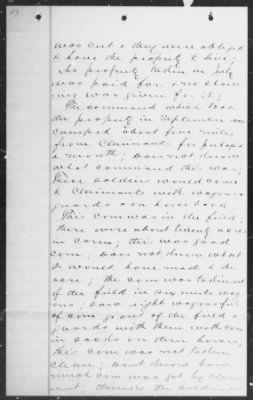 was out & they were obliged
to have the property to live;
No property taken in July
was paid for & no
was given for it;
The command which took
the property in September was
camped about five miles
from Claimant for perhaps
a month; Does not know
what command this was;
These soldiers would come
to Claimants with wagons &
guards & on horseback
This corn was in the field;
there were about twenty acres
in corn; this was good
corn; does not know what
it would have made to the
acre; the corn was taken out
of the field in six mule wag
ons; saw eight wagons full
of corn go out of the field &
guards with them with corn
in sacks on their horses;
this corn was not taken
clean; dont know how
much corn was got by claim
ant; thinks the soldiers